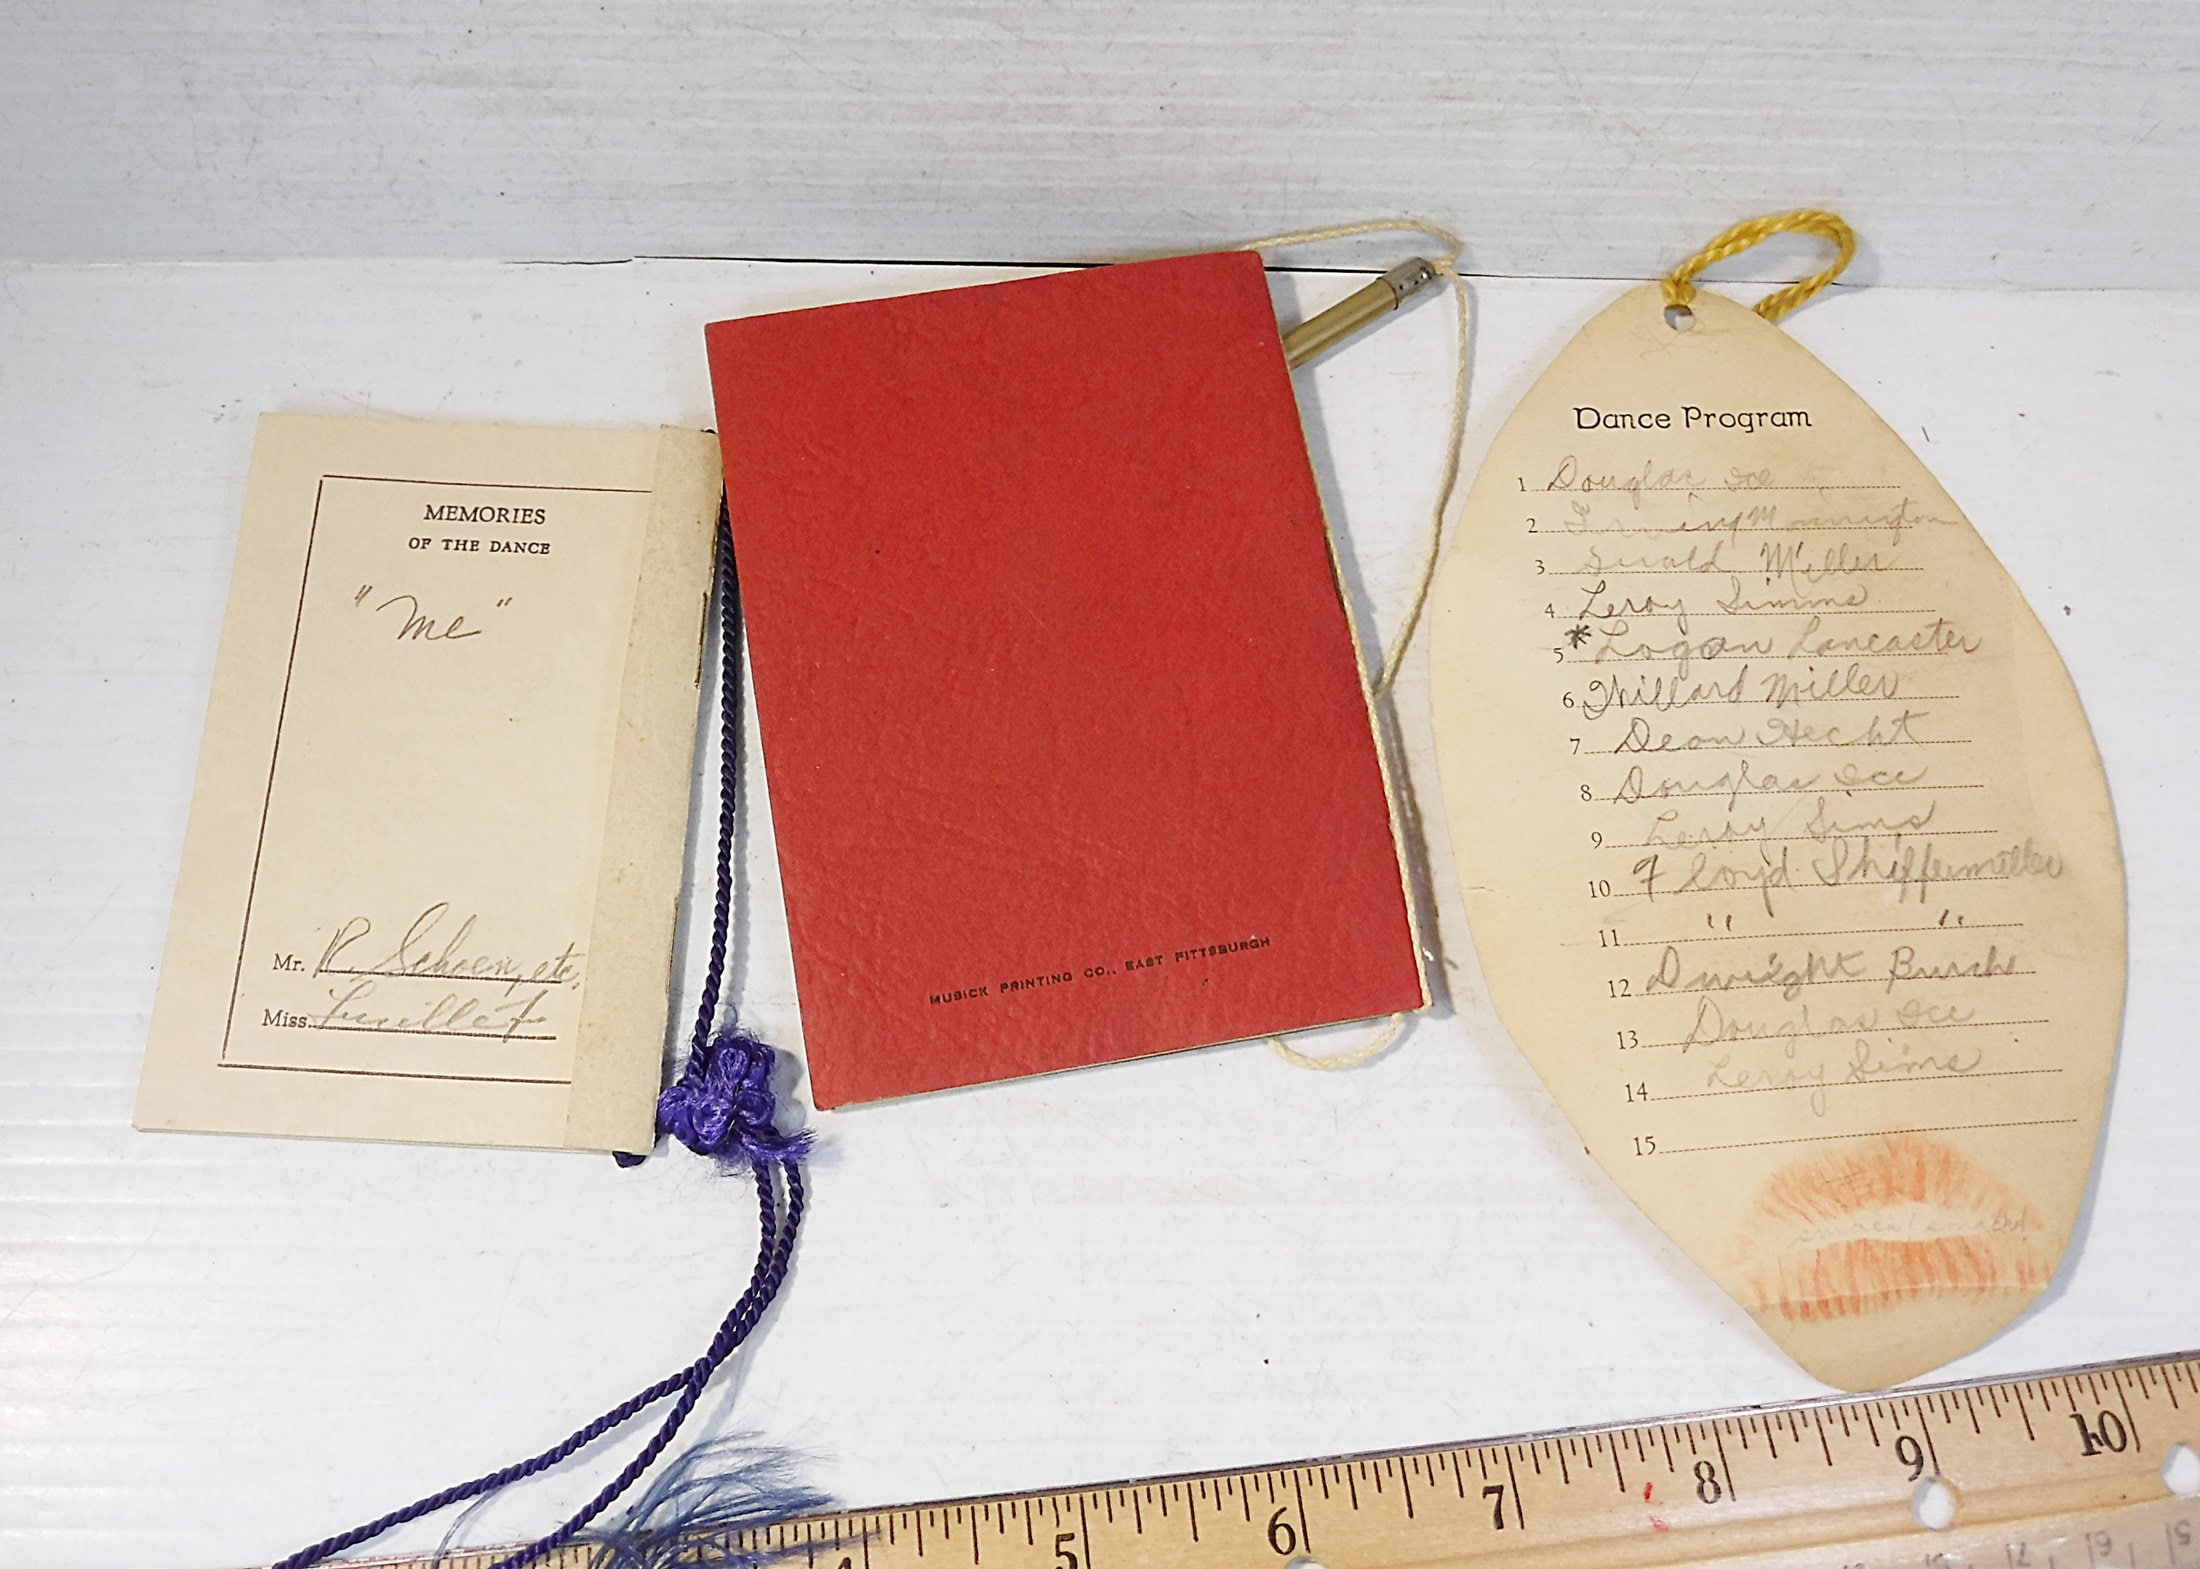 MEMORIES
OF THE DANCE
"Me"
Mr. R. Schoen, etc.
Miss.
MUSICK PRINTING CO., EAST PITTSBURGH
Dance Program
1 Douglas Ice
2
3 Miller
4 Leroy Simms
5 * Logan Lancaster
6 Willard Miller
7 Dean Hecht
8 Douglas Ice
9 Leroy Sims
10 Floyd
11 " "
12 Dwight
13 Douglas Ice
14 Leroy Sims
15
smack!
4
5
6
7
8
9
10